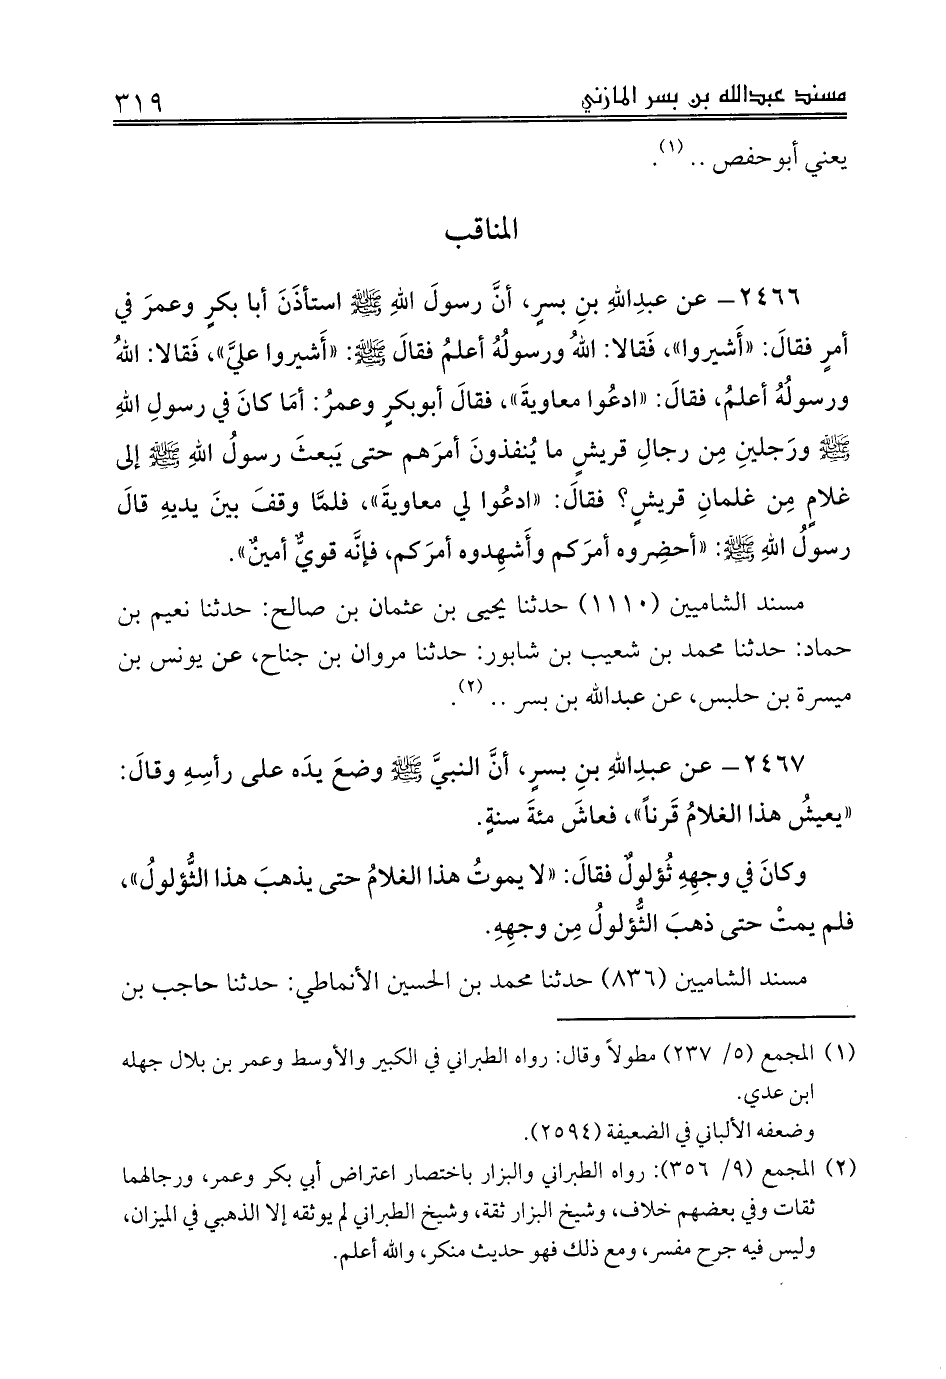 مسند عبدالله بن بسر المازني ٣١٩
يعني أبو حفص .. (١).
المناقب
٢٤٦٦ – عن عبدِاللهِ بنِ بسرٍ، أنَّ رسولَ اللهِ ﷺ استأذَنَ أبا بكرٍ وعمرَ في
أمرٍ فقالَ: «أَشيروا»، فَقالا: اللهُ ورسولُهُ أعلمُ فقالَ ﷺ: «أَشيروا عليَّ»، فَقالا: اللهُ
ورسولُهُ أعلمُ، فقالَ: «ادعُوا معاويةَ»، فقالَ أبوبكرٍ وعمرُ: أمَا كانَ في رسولِ اللهِ
ﷺ ورَجلينِ مِن رجالِ قريشٍ ما يُنفذونَ أمرَهم حتى يَبعثَ رسولُ اللهِ ﷺ إلى
غلامٍ مِن غلمانِ قريشٍ؟ فقالَ: «ادعُوا لي معاويةَ»، فلمَّا وقفَ بينَ يديهِ قالَ
رسولُ اللهِ ﷺ: «أحضِروه أمرَكم وأَشهِدوه أمرَكم، فإنَّه قويٌّ أمينٌ».
مسند الشاميين (١١١٠) حدثنا يحيى بن عثمان بن صالح: حدثنا نعيم بن
حماد: حدثنا محمد بن شعيب بن شابور: حدثنا مروان بن جناح، عن يونس بن
ميسرة بن حلبس، عن عبدالله بن بسر .. (٢).
٢٤٦٧ – عن عبدِاللهِ بنِ بسرٍ، أنَّ النبيَّ ﷺ وضعَ يدَه على رأسِهِ وقالَ:
«يعيشُ هذا الغلامُ قَرناً»، فعاشَ مئةَ سنةٍ.
وكانَ في وجهِهِ ثُؤلولٌ فقالَ: «لا يموتُ هذا الغلامُ حتى يذهبَ هذا الثُّؤلولُ»،
فلم يمتْ حتى ذهبَ الثُّؤلولُ مِن وجهِهِ.
مسند الشاميين (٨٣٦) حدثنا محمد بن الحسين الأنماطي: حدثنا حاجب بن
(١) المجمع (٥/ ٢٣٧) مطولاً وقال: رواه الطبراني في الكبير والأوسط وعمر بن بلال جهله
ابن عدي.
وضعفه الألباني في الضعيفة (٢٥٩٤).
(٢) المجمع (٩/ ٣٥٦): رواه الطبراني والبزار باختصار اعتراض أبي بكر وعمر، ورجالهما
ثقات وفي بعضهم خلاف، وشيخ البزار ثقة، وشيخ الطبراني لم يوثقه إلا الذهبي في الميزان،
وليس فيه جرح مفسر، ومع ذلك فهو حديث منكر، والله أعلم.